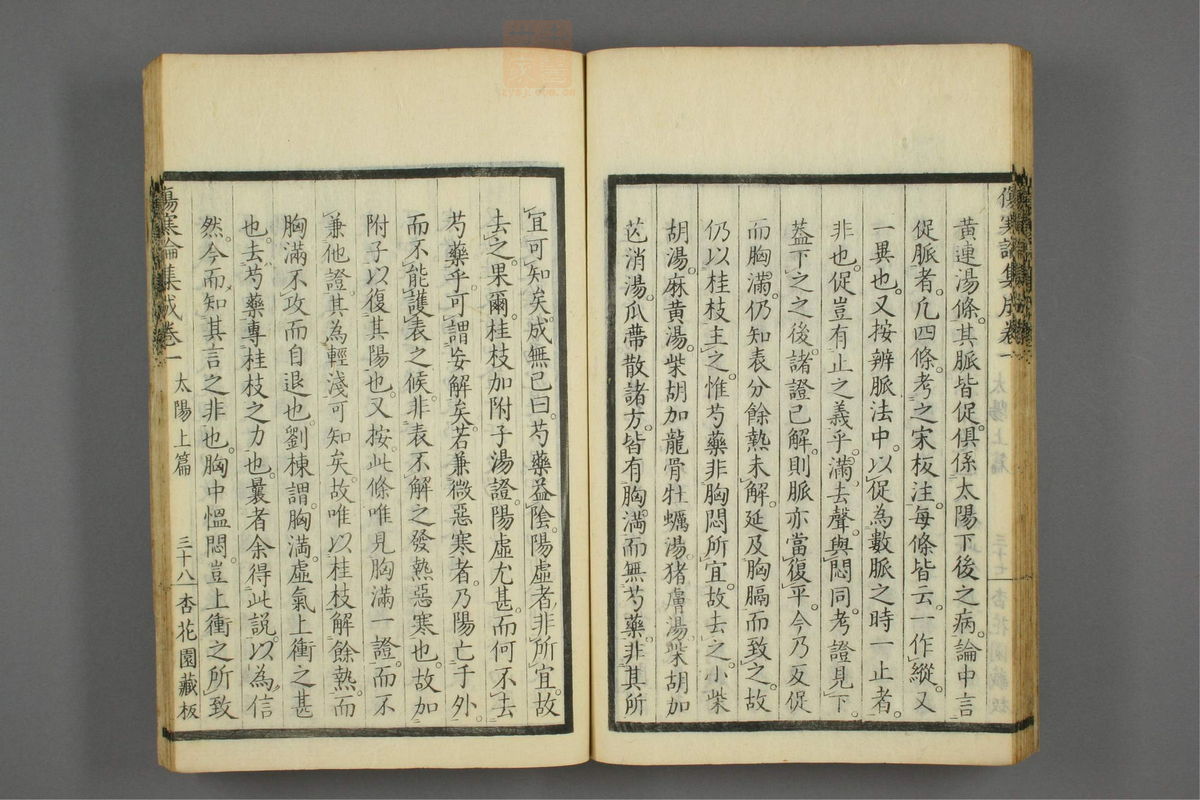 傷寒論集成卷一
太陽上篇
三十七
杏花園藏板
黃連湯條。其脈皆促。俱係太陽下後之病。論中言
促脈者。凡四條。考之宋板注。每條皆云。一作縱。又
一異也。又按辨脈法中。以促為數脈之時一止者。
非也。促豈有止之義乎。滿去聲。與悶同。考證見下。
蓋下之之後。諸證已解。則脈亦當復平。今乃反促
而胸滿。仍知表分餘熱未解。延及胸膈而致之。故
仍以桂枝主之。惟芍藥非胸悶所宜。故去之。小柴
胡湯。麻黃湯。柴胡加龍骨牡蠣湯。猪膚湯。柴胡加
芒消湯。瓜蔕散諸方。皆有胸滿。而無芍藥。非其所
宜可知矣。成無已曰。芍藥益陰。陽虛者。非所宜。故
去之。果爾。桂枝加附子湯證。陽虛尤甚。而何不去
芍藥乎。可謂妄解矣。若兼微惡寒者。乃陽亡于外。
而不能護表之候。非表不解之發熱惡寒也。故加
附子以復其陽也。又按。此條唯見胸滿一證。而不
兼他證。其為輕淺可知矣。故唯以桂枝解餘熱。而
胸滿不攻而自退也。劉棟謂。胸滿。虛氣上衝之甚
也。去芍藥專桂枝之力也。曩者余得此說。以為信
然。今而知其言之非也。胸中慍悶。豈上衝之所致
傷寒論集成卷一
太陽上篇
三十八
杏花園藏板